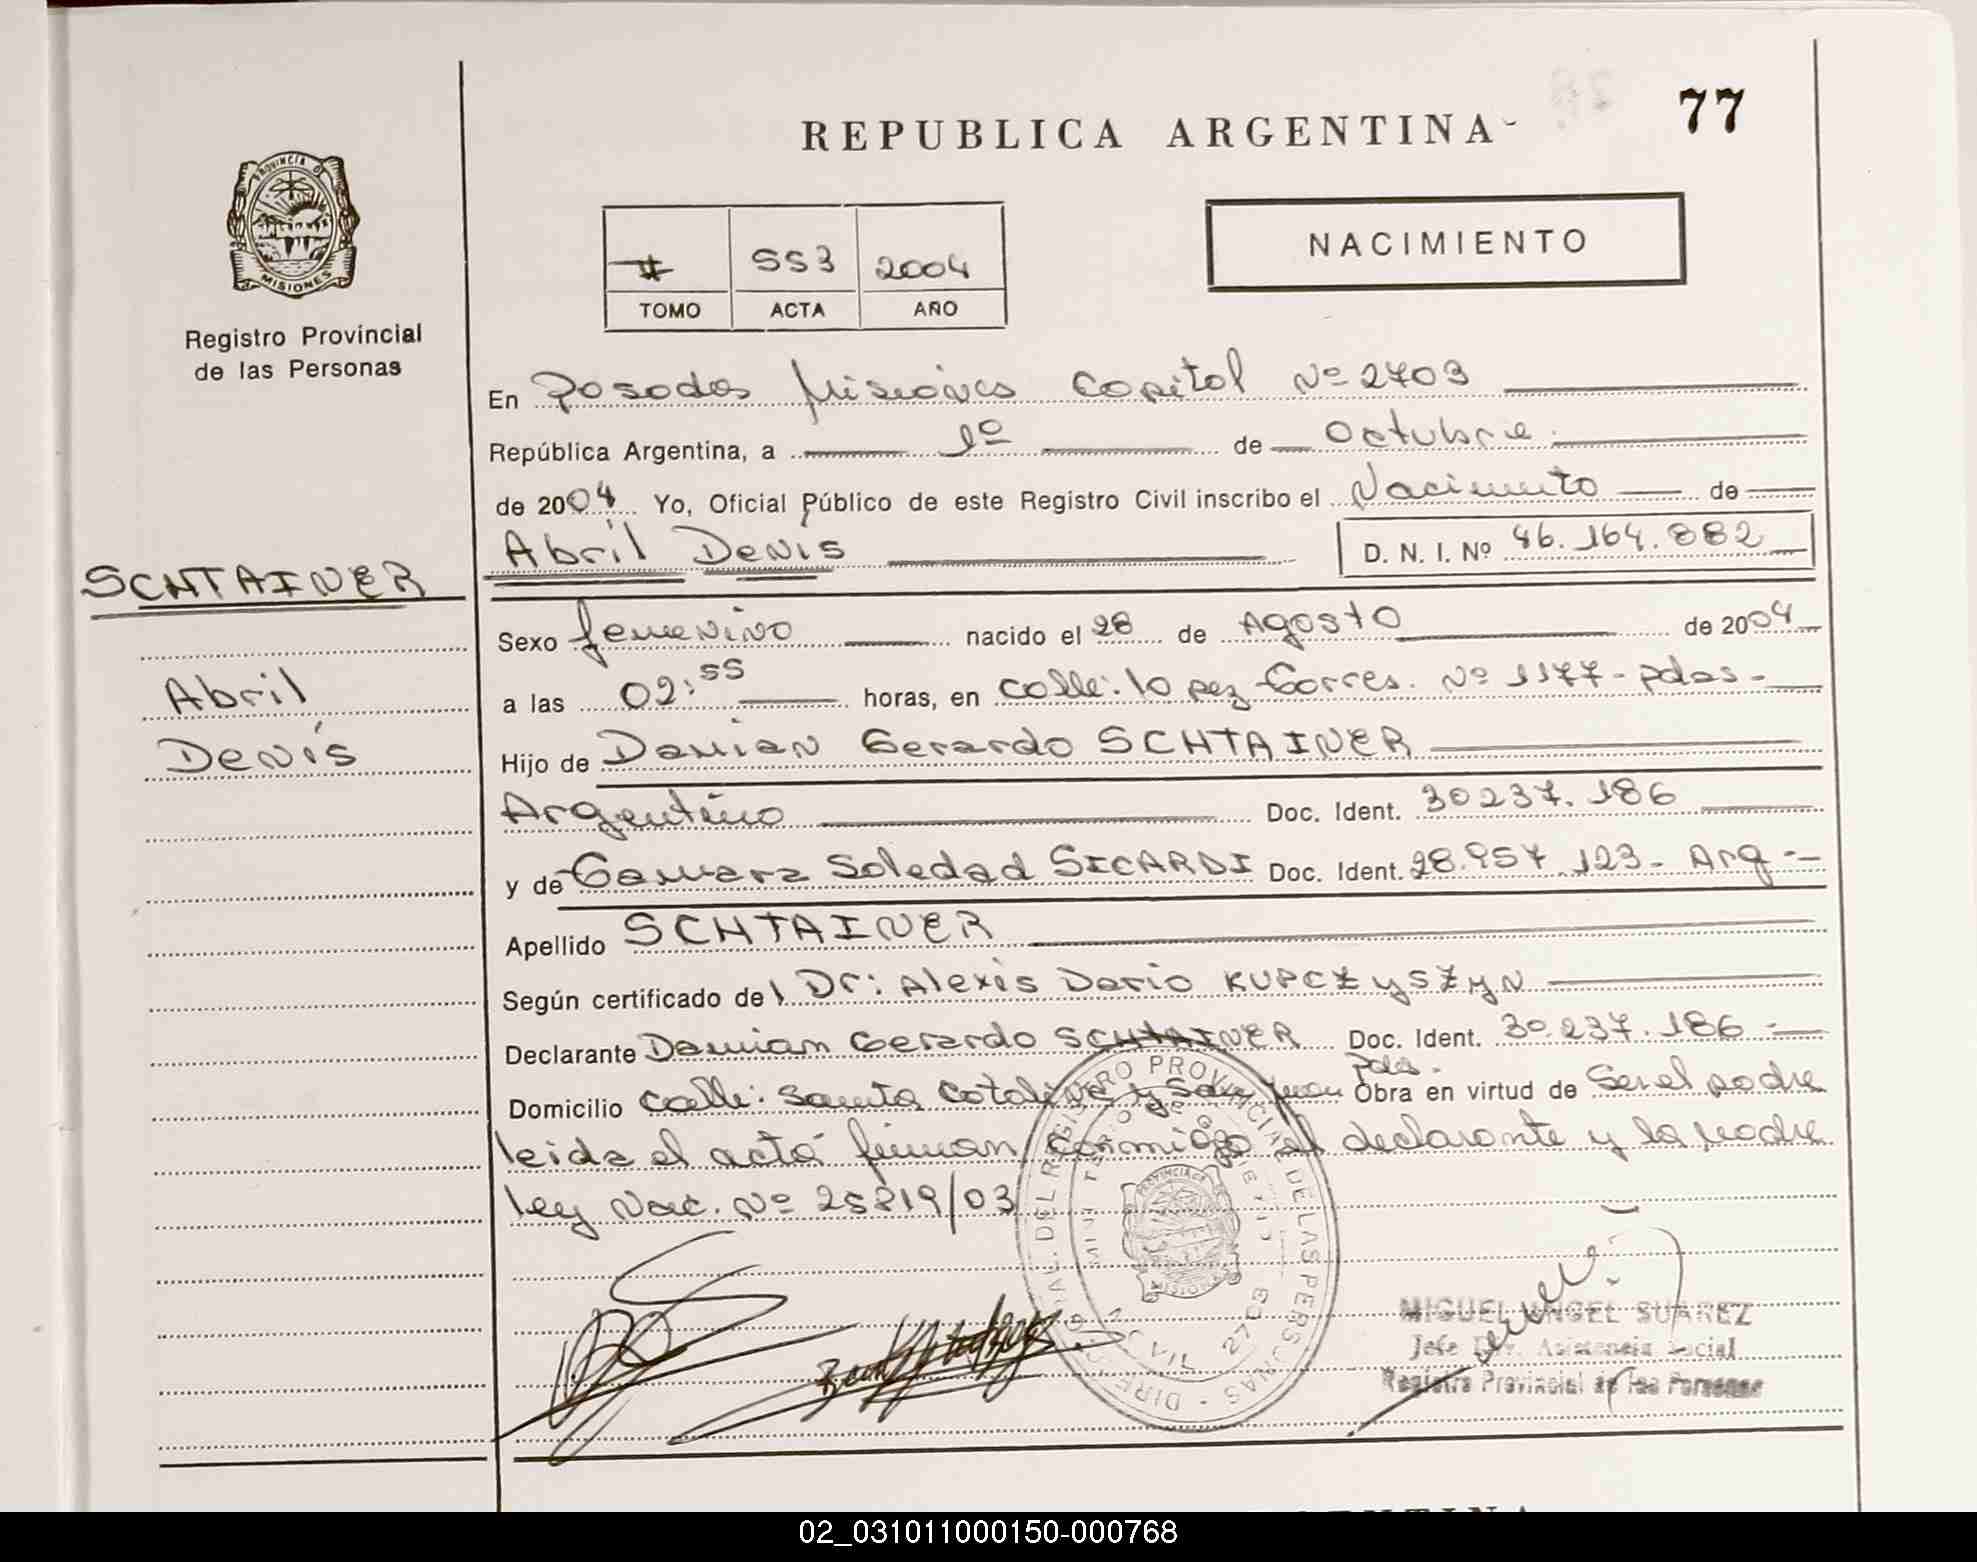 77
REPUBLICA ARGENTINA
PROVINCIA D
MISIONES
Registro Provincial
de las Personas
553 2004
TOMO ACTA AÑO
NACIMIENTO
En Posadas Misiones Capital Nº 2703
República Argentina, a 1º de Octubre
de 2004 Yo, Oficial Público de este Registro Civil inscribo el Nacimiento de
Abril Denís D. N. I. Nº 46.164.882
SCHTAINER
Abril
Denís
Sexo femenino nacido el 28 de Agosto de 2004
a las 02:55 horas, en calle: lopez torres. Nº 1177 - pdas -
Hijo de Damian Gerardo SCHTAINER
Argentino Doc. Ident. 30237.186
y de Soledad SICARDI Doc. Ident. 28.957.123 - Arg -
Apellido SCHTAINER
Según certificado del Dr: Alexis Dario KUPCZYSZYN
Declarante Damian Gerardo SCHTAINER Doc. Ident. 30.237.186 -
Domicilio calle: Santa Catalina y San Juan pdas. Obra en virtud de Ser el padre
leida el acta firman conmigo el declarante y la madre
ley Nac. Nº 25819/03
DEL REGISTRO PROVINCIAL DE LAS PERSONAS
2703
MIGUEL ANGEL SUAREZ
Jefe Div. Asistencia Social
Registro Provincial de las Personas
02_031011000150-000768